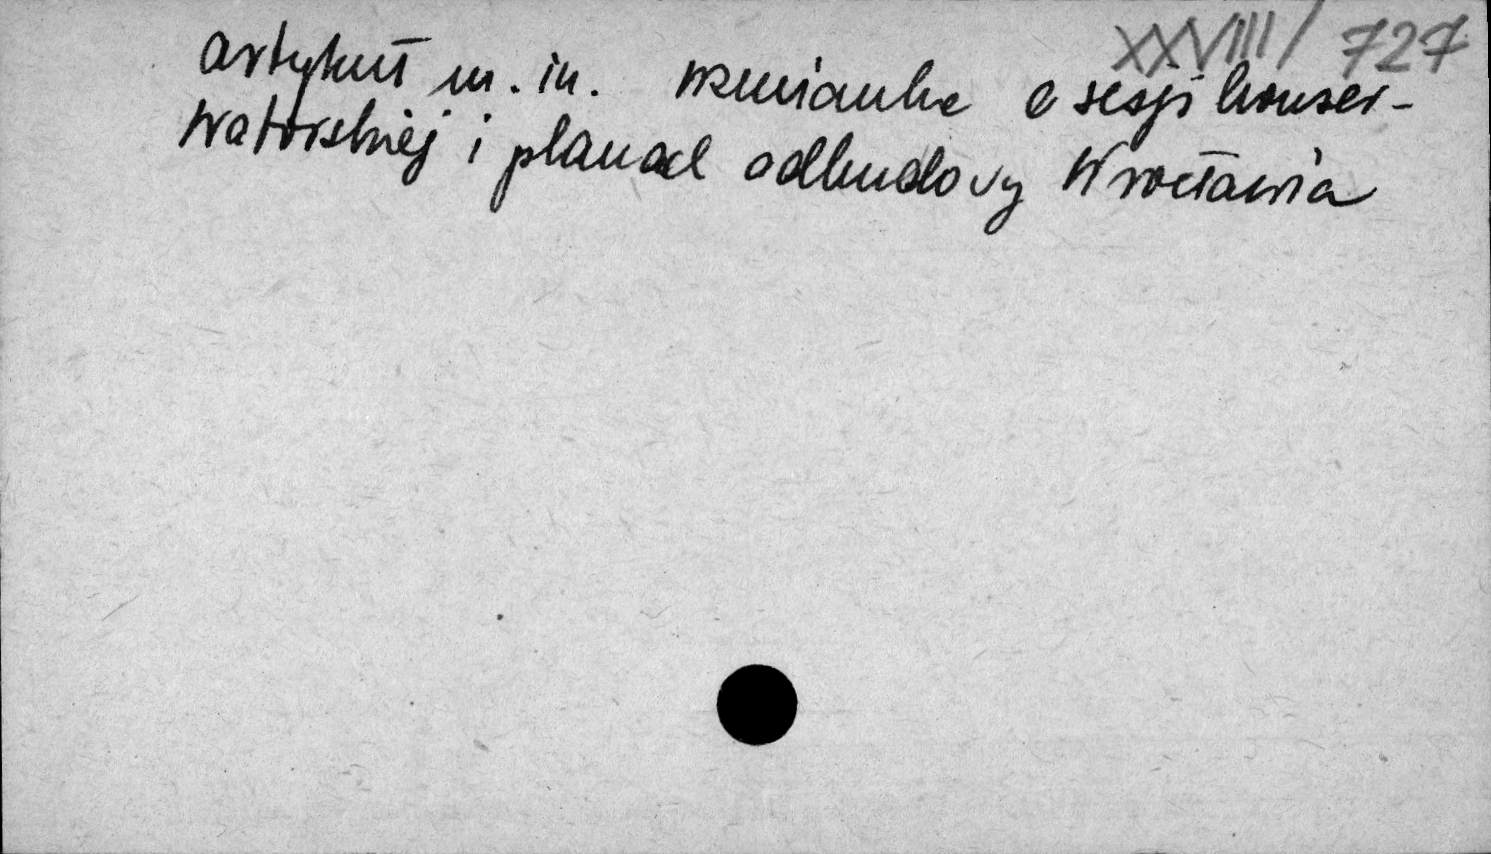 XXVIII/727
artykuł m.in. wzmianka o sesji konser-
watorskiej i planach odbudowy Wrocławia